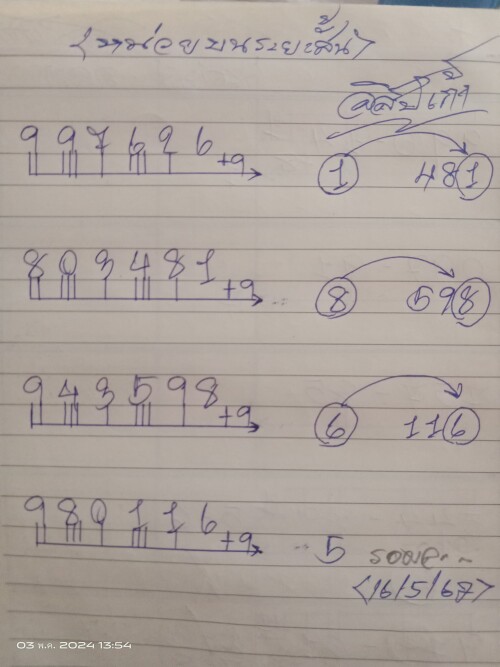 <หน่อยบนระยะสั้น>
997696 +9 → 1 481
803481 +9 → 8 598
943598 +9 → 6 116
980116 +9 → 5
<16/5/67>
03 พ.ค. 2024 13:54